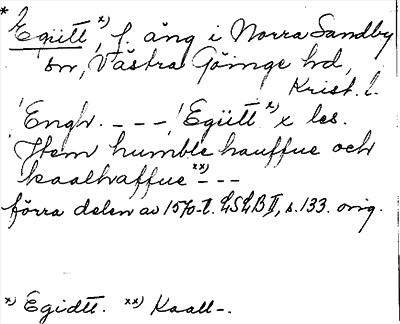 * Egiitt x), f. äng i Norra Sandby
sn, Västra Göinge hd,
Krist. l.
! Engh. - - - ! Egiitt x) x les.
Item humble hauffue och
kaalhaffue xx) - - -
förra delen av 1570-t. LSLB II, s. 133. orig.
x) Egidtt. xx) Kaall-.